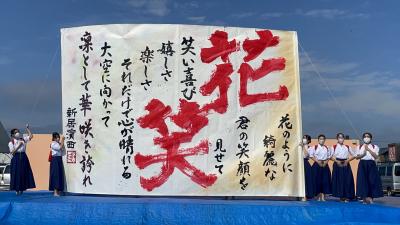 花のように
綺麗な
君の笑顔を
見せて
花
笑
笑い喜び
嬉しさ
楽しさ
それだけで心が晴れる
大空に向かって
凛として華咲き誇れ
新居濱西